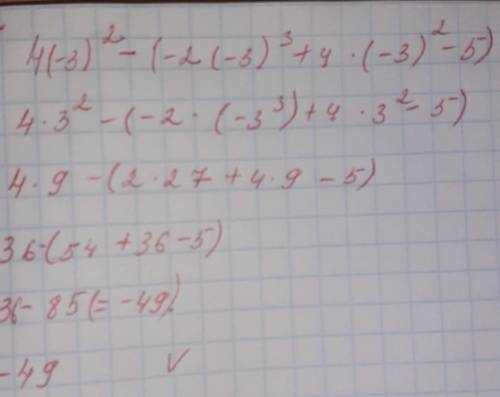 4(-3)² - (-2(-3)³ + 4 · (-3)² - 5)
4 · 3² - (-2 · (-3³) + 4 · 3² - 5)
4 · 9 - (2 · 27 + 4 · 9 - 5)
36 - (54 + 36 - 5)
36 - 85 (= -49)
-49 ✓